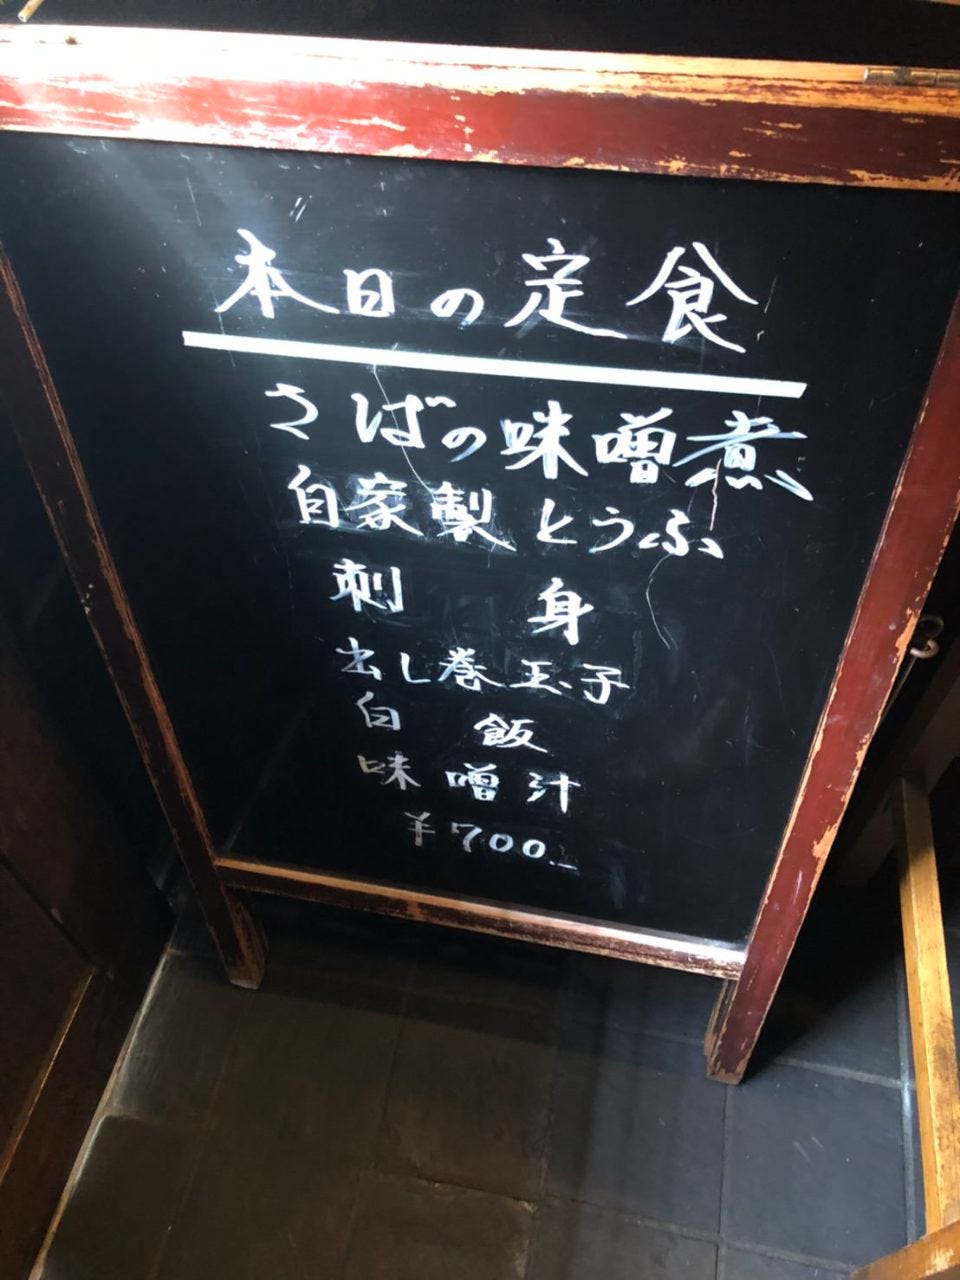 本日の定食
さばの味噌煮
自家製とうふ
刺身
出し巻玉子
白飯
味噌汁
¥700_